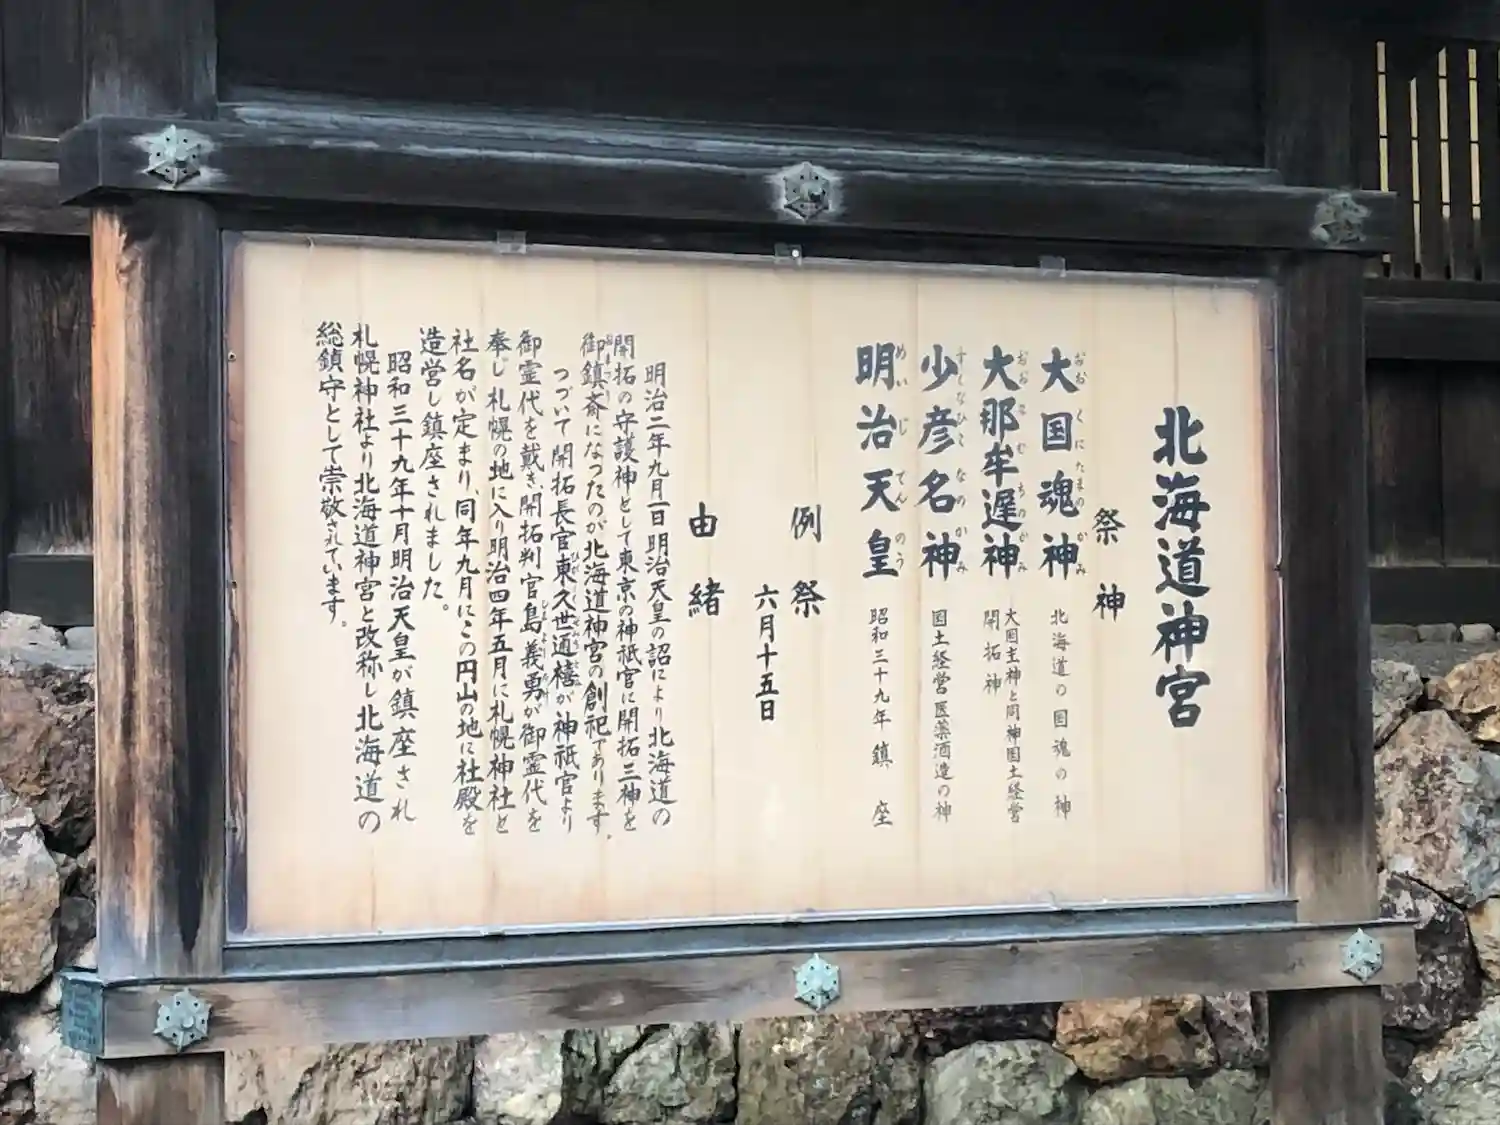 北海道神宮
祭神
大国魂神 北海道の国魂の神
大那牟遅神 大国主神と同神国土経営
開拓神
少彦名神 国土経営医薬酒造の神
明治天皇 昭和三十九年鎮座
例祭
六月十五日
由緒
明治二年九月一日明治天皇の詔により北海道の
開拓の守護神として東京の神祇官に開拓三神を
御鎮斎になったのが北海道神宮の創祀であります。
つづいて開拓長官東久世通禧が神祇官より
御霊代を戴き、開拓判官島義勇が御霊代を
奉じ札幌の地に入り明治四年五月に札幌神社と
社名が定まり、同年九月にこの円山の地に社殿を
造営し鎮座されました。
昭和三十九年十月明治天皇が鎮座され
札幌神社より北海道神宮と改称し北海道の
総鎮守として崇敬されています。